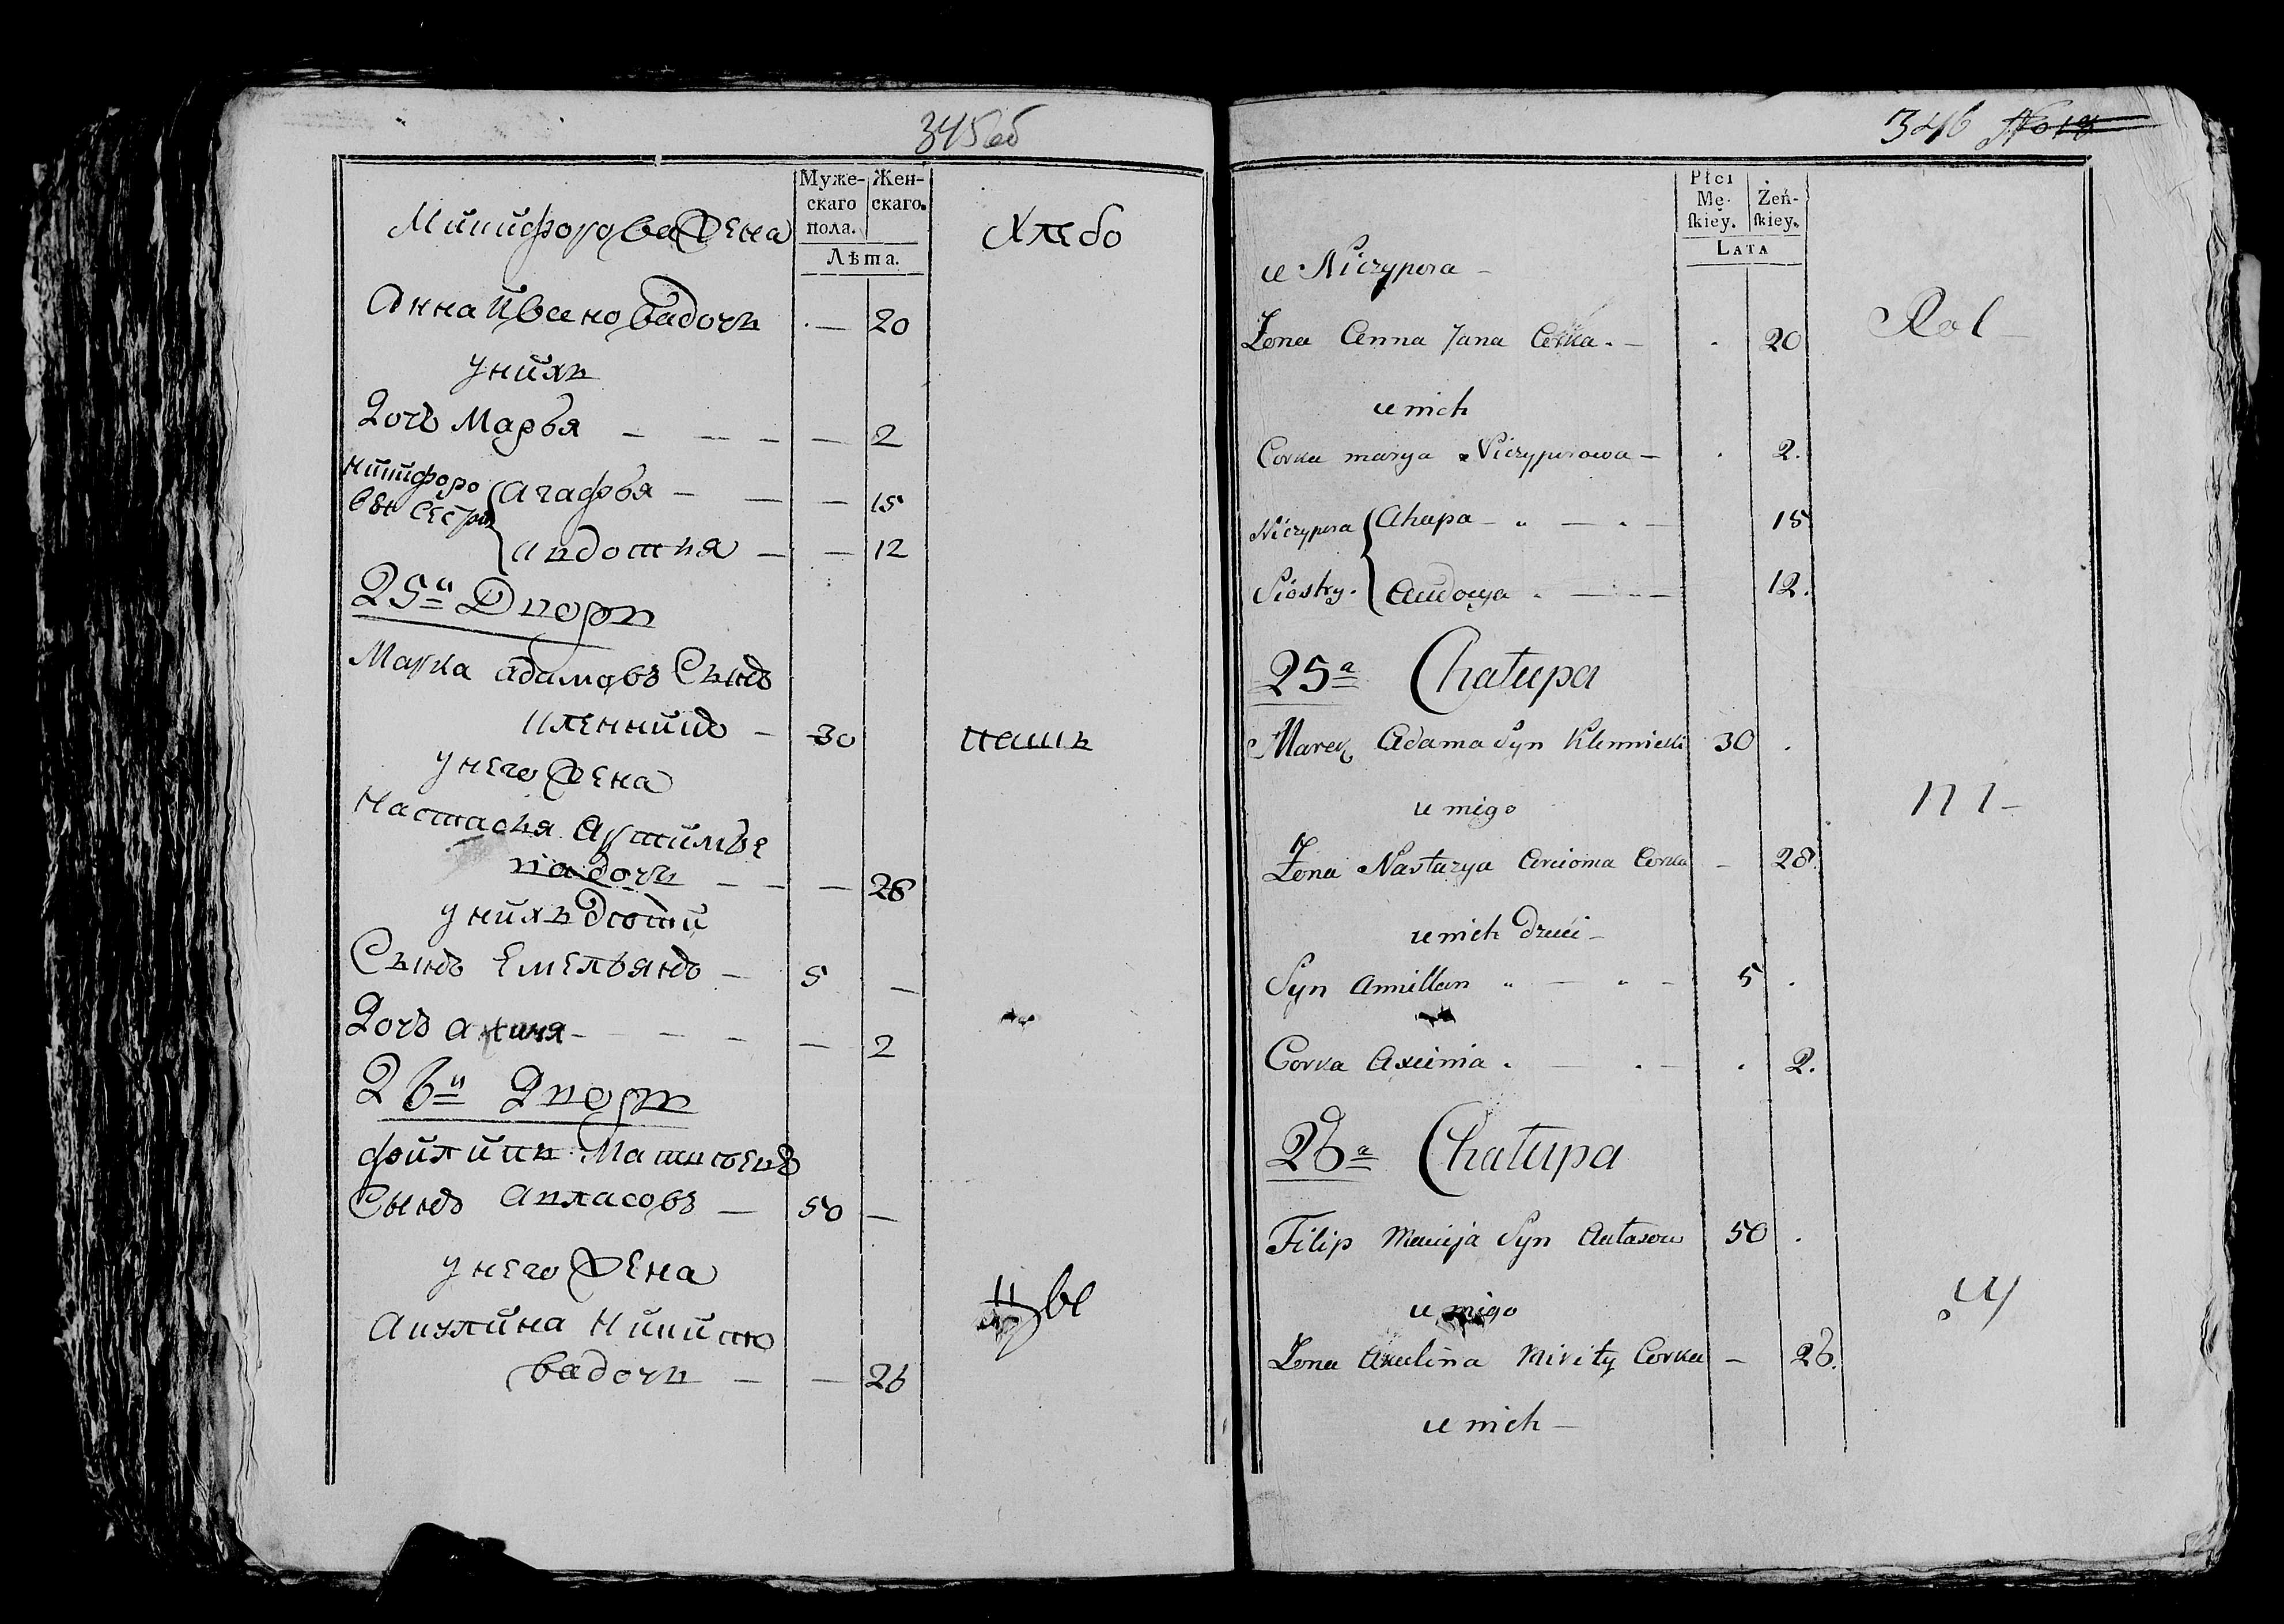 345об
Муже-
скаго
пола.
Жен-
скаго.
Лѣта.
Никифорова Жена
Хлебо
Анна Ивановадочь — 20
Унихъ
Дочь Марья — — — — 2
Никифоро
вы Сестры
Агафья — — — 15
Авдотья — — 12
25й Дворъ
Марка Адамовъ Сынъ
— 30
пашъ
унего Жена
Настасья Артимье
вадочь — — — 28
унихъ Дѣти
Сынъ Емельянъ — 5 —
Дочь Аксиня — — — — 2
26й Дворъ
Филипъ Матвѣевъ
Сынъ Авласовъ — 50 —
унего Жена
Акулина Никито
вадочь — — 26
346 No 18
Płci
Mę-
ſkiey.
Żeń-
ſkiey.
LATA
u Niczypora —
Rol —
Zona Anna Jana Corka . — . 20
u nich
Corka marya Niczyporowa — . 2.
Niczypora
Siostry.
Ahapa — „ — „ — 15
Audocya . — „ — 12.
25a Chałupa
Marek Adama Syn Klimnicki 30 .
u niego
Zona Nastazya Arcioma Corka — 28.
u nich Dzieci —
Syn Amillan „ — „ — 5 .
Corka Axinia . — . — . 2.
26a Chałupa
Filip Macieja Syn Aułasow 50 .
u niego
Zona Akulina Nikity Corka — 26.
u nich —